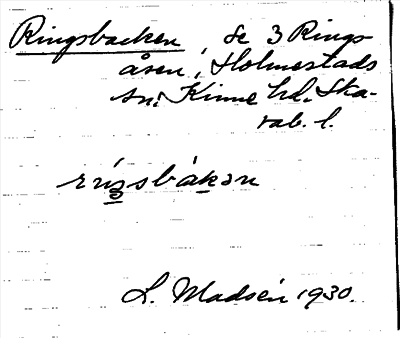 Ringsbacken, se 3 Rings-
åsen, Holmestads
sn, Kinne hd. Ska-
rab. l.
L. Madsén 1930.